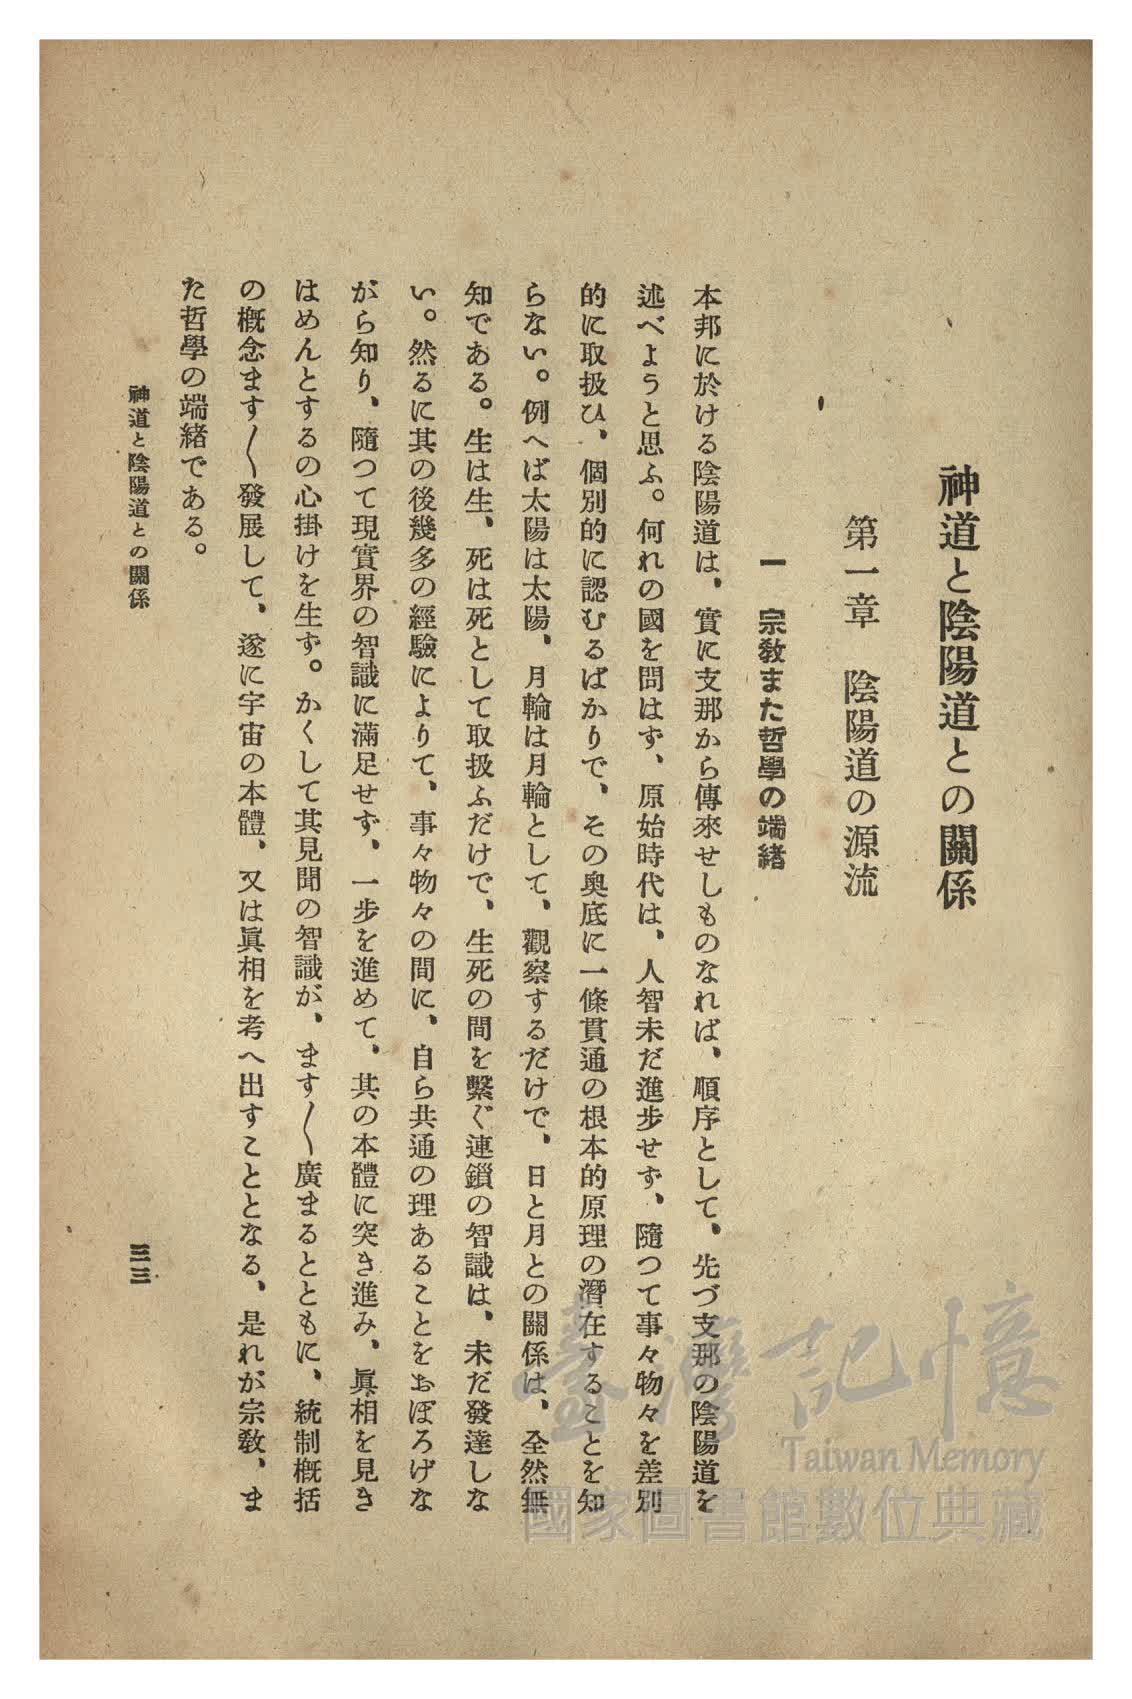 神道と陰陽道との關係
第一章　陰陽道の源流
一　宗敎また哲學の端緒
本邦に於ける陰陽道は、實に支那から傳來せしものなれば、順序として、先づ支那の陰陽道を
述べようと思ふ。何れの國を問はず、原始時代は、人智未だ進步せず、隨つて事々物々を差別
的に取扱ひ、個別的に認むるばかりで、その奧底に一條貫通の根本的原理の潛在することを知
らない。例へば太陽は太陽、月輪は月輪として、觀察するだけで、日と月との關係は、全然無
知である。生は生、死は死として取扱ふだけで、生死の間を繫ぐ連鎖の智識は、未だ發達しな
い。然るに其の後幾多の經驗によりて、事々物々の間に、自ら共通の理あることをおぼろげな
がら知り、隨つて現實界の智識に滿足せず、一步を進めて、其の本體に突き進み、眞相を見き
はめんとするの心掛けを生ず。かくして其見聞の智識が、ます〱廣まるとともに、統制概括
の概念ます〱發展して、遂に宇宙の本體、又は眞相を考へ出すこととなる、是れが宗敎、ま
た哲學の端緒である。
神道と陰陽道との關係
三三
臺灣記憶
Taiwan Memory
國家圖書館數位典藏